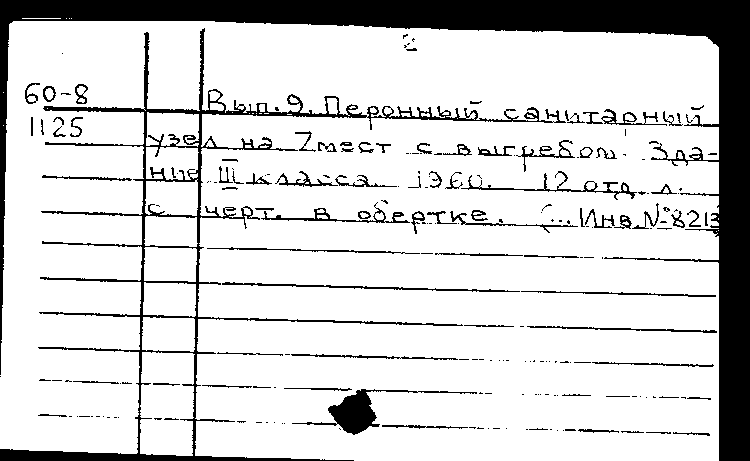 2
60-8
1125
Вып. 9. Перонный санитарный
узел на 7 мест с выгребом. Зда-
ние III класса. 1960. 12 отд. л.
с черт. в обертке. (... Инв. № 8213